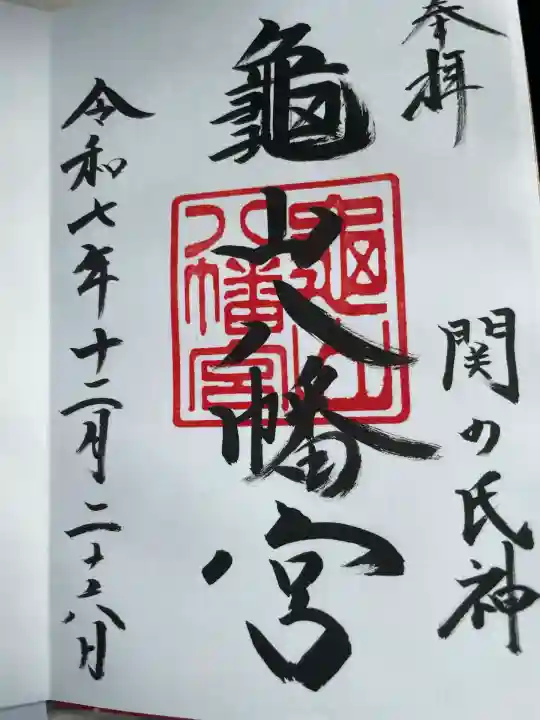 奉拝
関の氏神
龜山八幡宮
龜山八幡宮
令和七年十二月二十八日